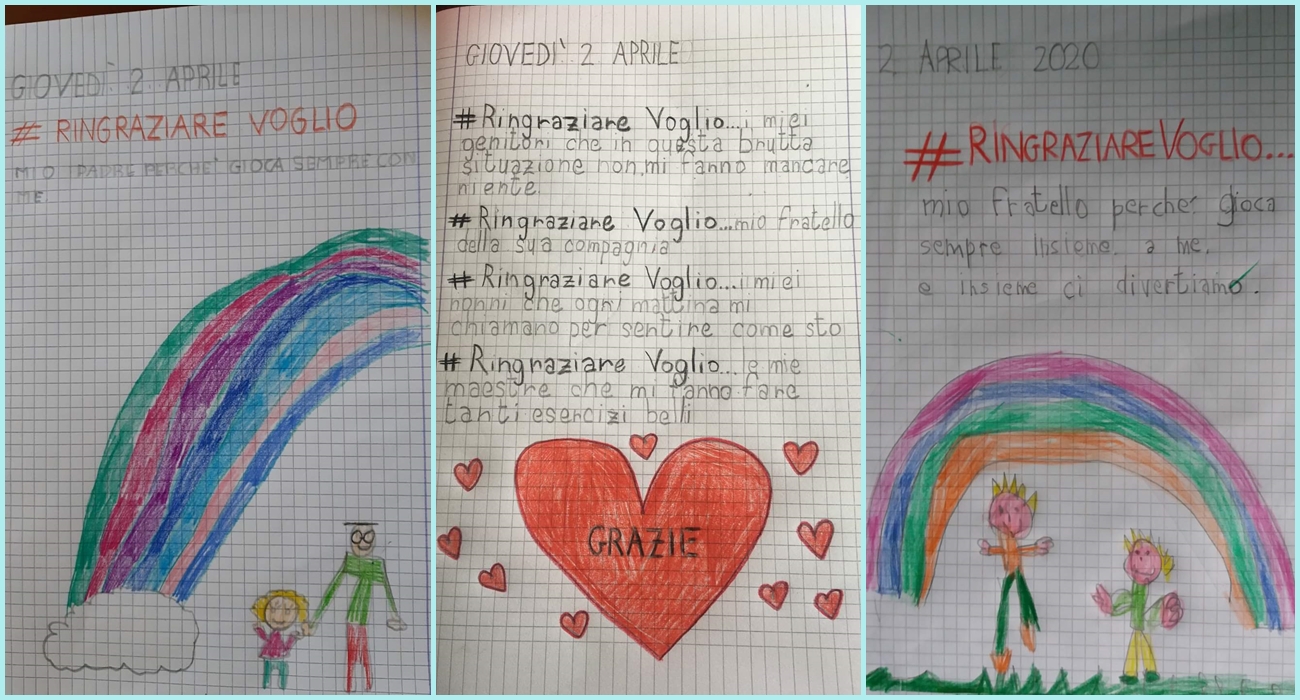 GIOVEDÌ 2 APRILE
# RINGRAZIARE VOGLIO
MIO PADRE PERCHE' GIOCA SEMPRE CON
ME.
GIOVEDI' 2 APRILE
# Ringraziare Voglio...i miei
genitori che in questa brutta
situazione non mi fanno mancare
niente.
# Ringraziare Voglio...mio fratello
della sua compagnia
# Ringraziare Voglio...i miei
nonni che ogni mattina mi
chiamano per sentire come sto
# Ringraziare Voglio...le mie
maestre che mi fanno fare
tanti esercizi belli
GRAZIE
2 APRILE 2020
#RINGRAZIAREVOGLIO...
mio fratello perche' gioca
sempre insieme a me.
e insieme ci divertiamo.